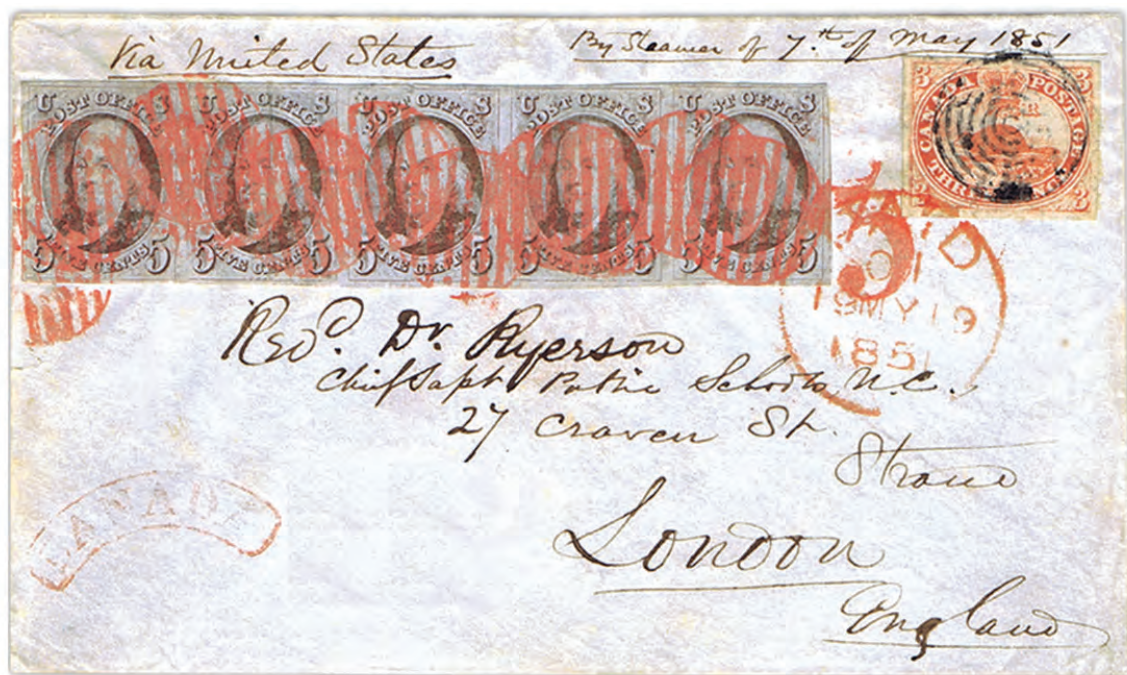 Via United States
By Steamer of 7th of May 1851
U S
POST OFFICE
5 FIVE CENTS 5
U S
POST OFFICE
5 FIVE CENTS 5
U S
POST OFFICE
5 FIVE CENTS 5
U S
POST OFFICE
5 FIVE CENTS 5
U S
POST OFFICE
5 FIVE CENTS 5
3 3
CANADA POSTAGE
THREE
3 3
PAID
3
19 MY 19
1851
Revd. Dr. Ryerson
Chief Supt Public Schools U.C.
27 Craven St.
Strand
London
England
CANADA